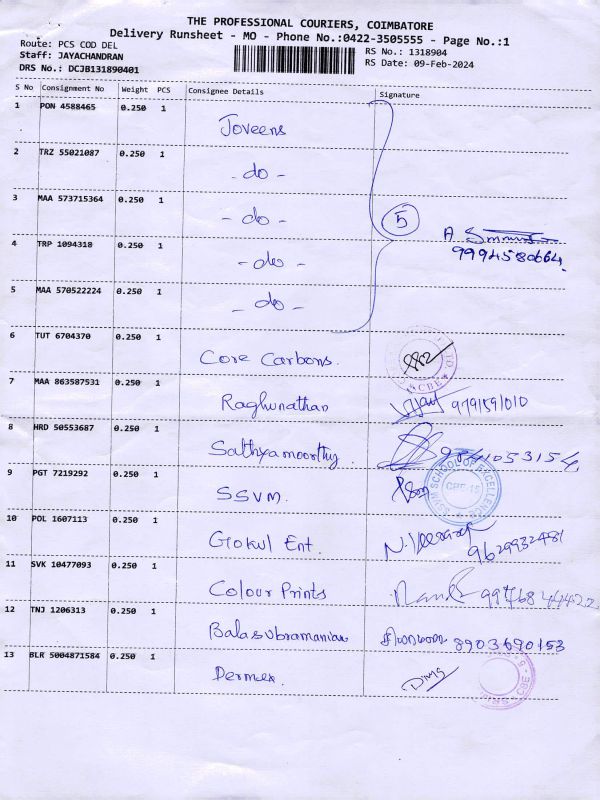 THE PROFESSIONAL COURIERS, COIMBATORE
Delivery Runsheet - MO - Phone No.:0422-3505555 - Page No.:1
Route: PCS COD DEL
Staff: JAYACHANDRAN
DRS No.: DCJB131890401
RS No.: 1318904
RS Date: 09-Feb-2024
S No Consignment No Weight PCS Consignee Details Signature
1 PON 4588465 0.250 1 Joveens
2 TRZ 55021087 0.250 1 - do -
3 MAA 573715364 0.250 1 - do -
5
4 TRP 1094318 0.250 1 - do -
9994580664
5 MAA 570522224 0.250 1 - do -
6 TUT 6704370 0.250 1 Core Carbons.
CBE
7 MAA 863587531 0.250 1 Raghunathan 9791591010
8 HRD 50553687 0.250 1 Sathyamoorthy 9841053154
9 PGT 7219292 0.250 1 SSVM.
SSVM SCHOOL OF EXCELLENCE
10 POL 1607113 0.250 1 Gokul Ent. 9629932481
11 SVK 10477093 0.250 1 Colour Prints
12 TNJ 1206313 0.250 1 Balasubramanian 8903690153
13 BLR 5004871584 0.250 1 Dermex.
CBE